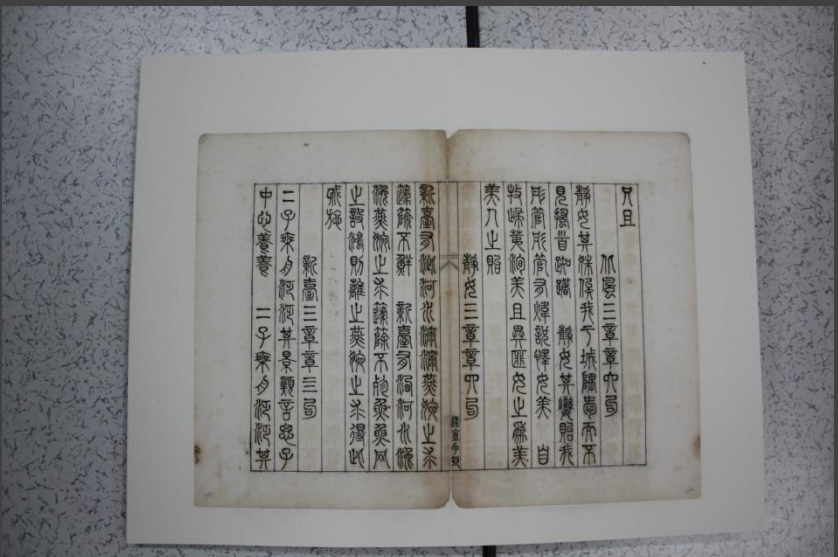 只且
北風三章章六句
靜女其姝俟我于城隅愛而不
見搔首踟躕　靜女其孌貽我
彤管彤管有煒說懌女美　自
牧歸荑洵美且異匪女之爲美
美人之貽
靜女三章章四句
新臺有泚河水瀰瀰燕婉之求
籧篨不鮮　新臺有洒河水浼
浼燕婉之求籧篨不殄魚网
之設鴻則離之燕婉之求得此
戚施
新臺三章章四句
二子乘舟汎汎其景願言思子
中心養養　二子乘舟汎汎其